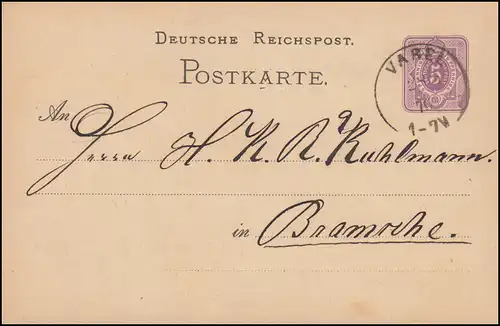 DEUTSCHE REICHSPOST.
POSTKARTE.
5
VAREL
1-7N
An
Herrn H. K. R. Kuhlmann.
in Bramsche.